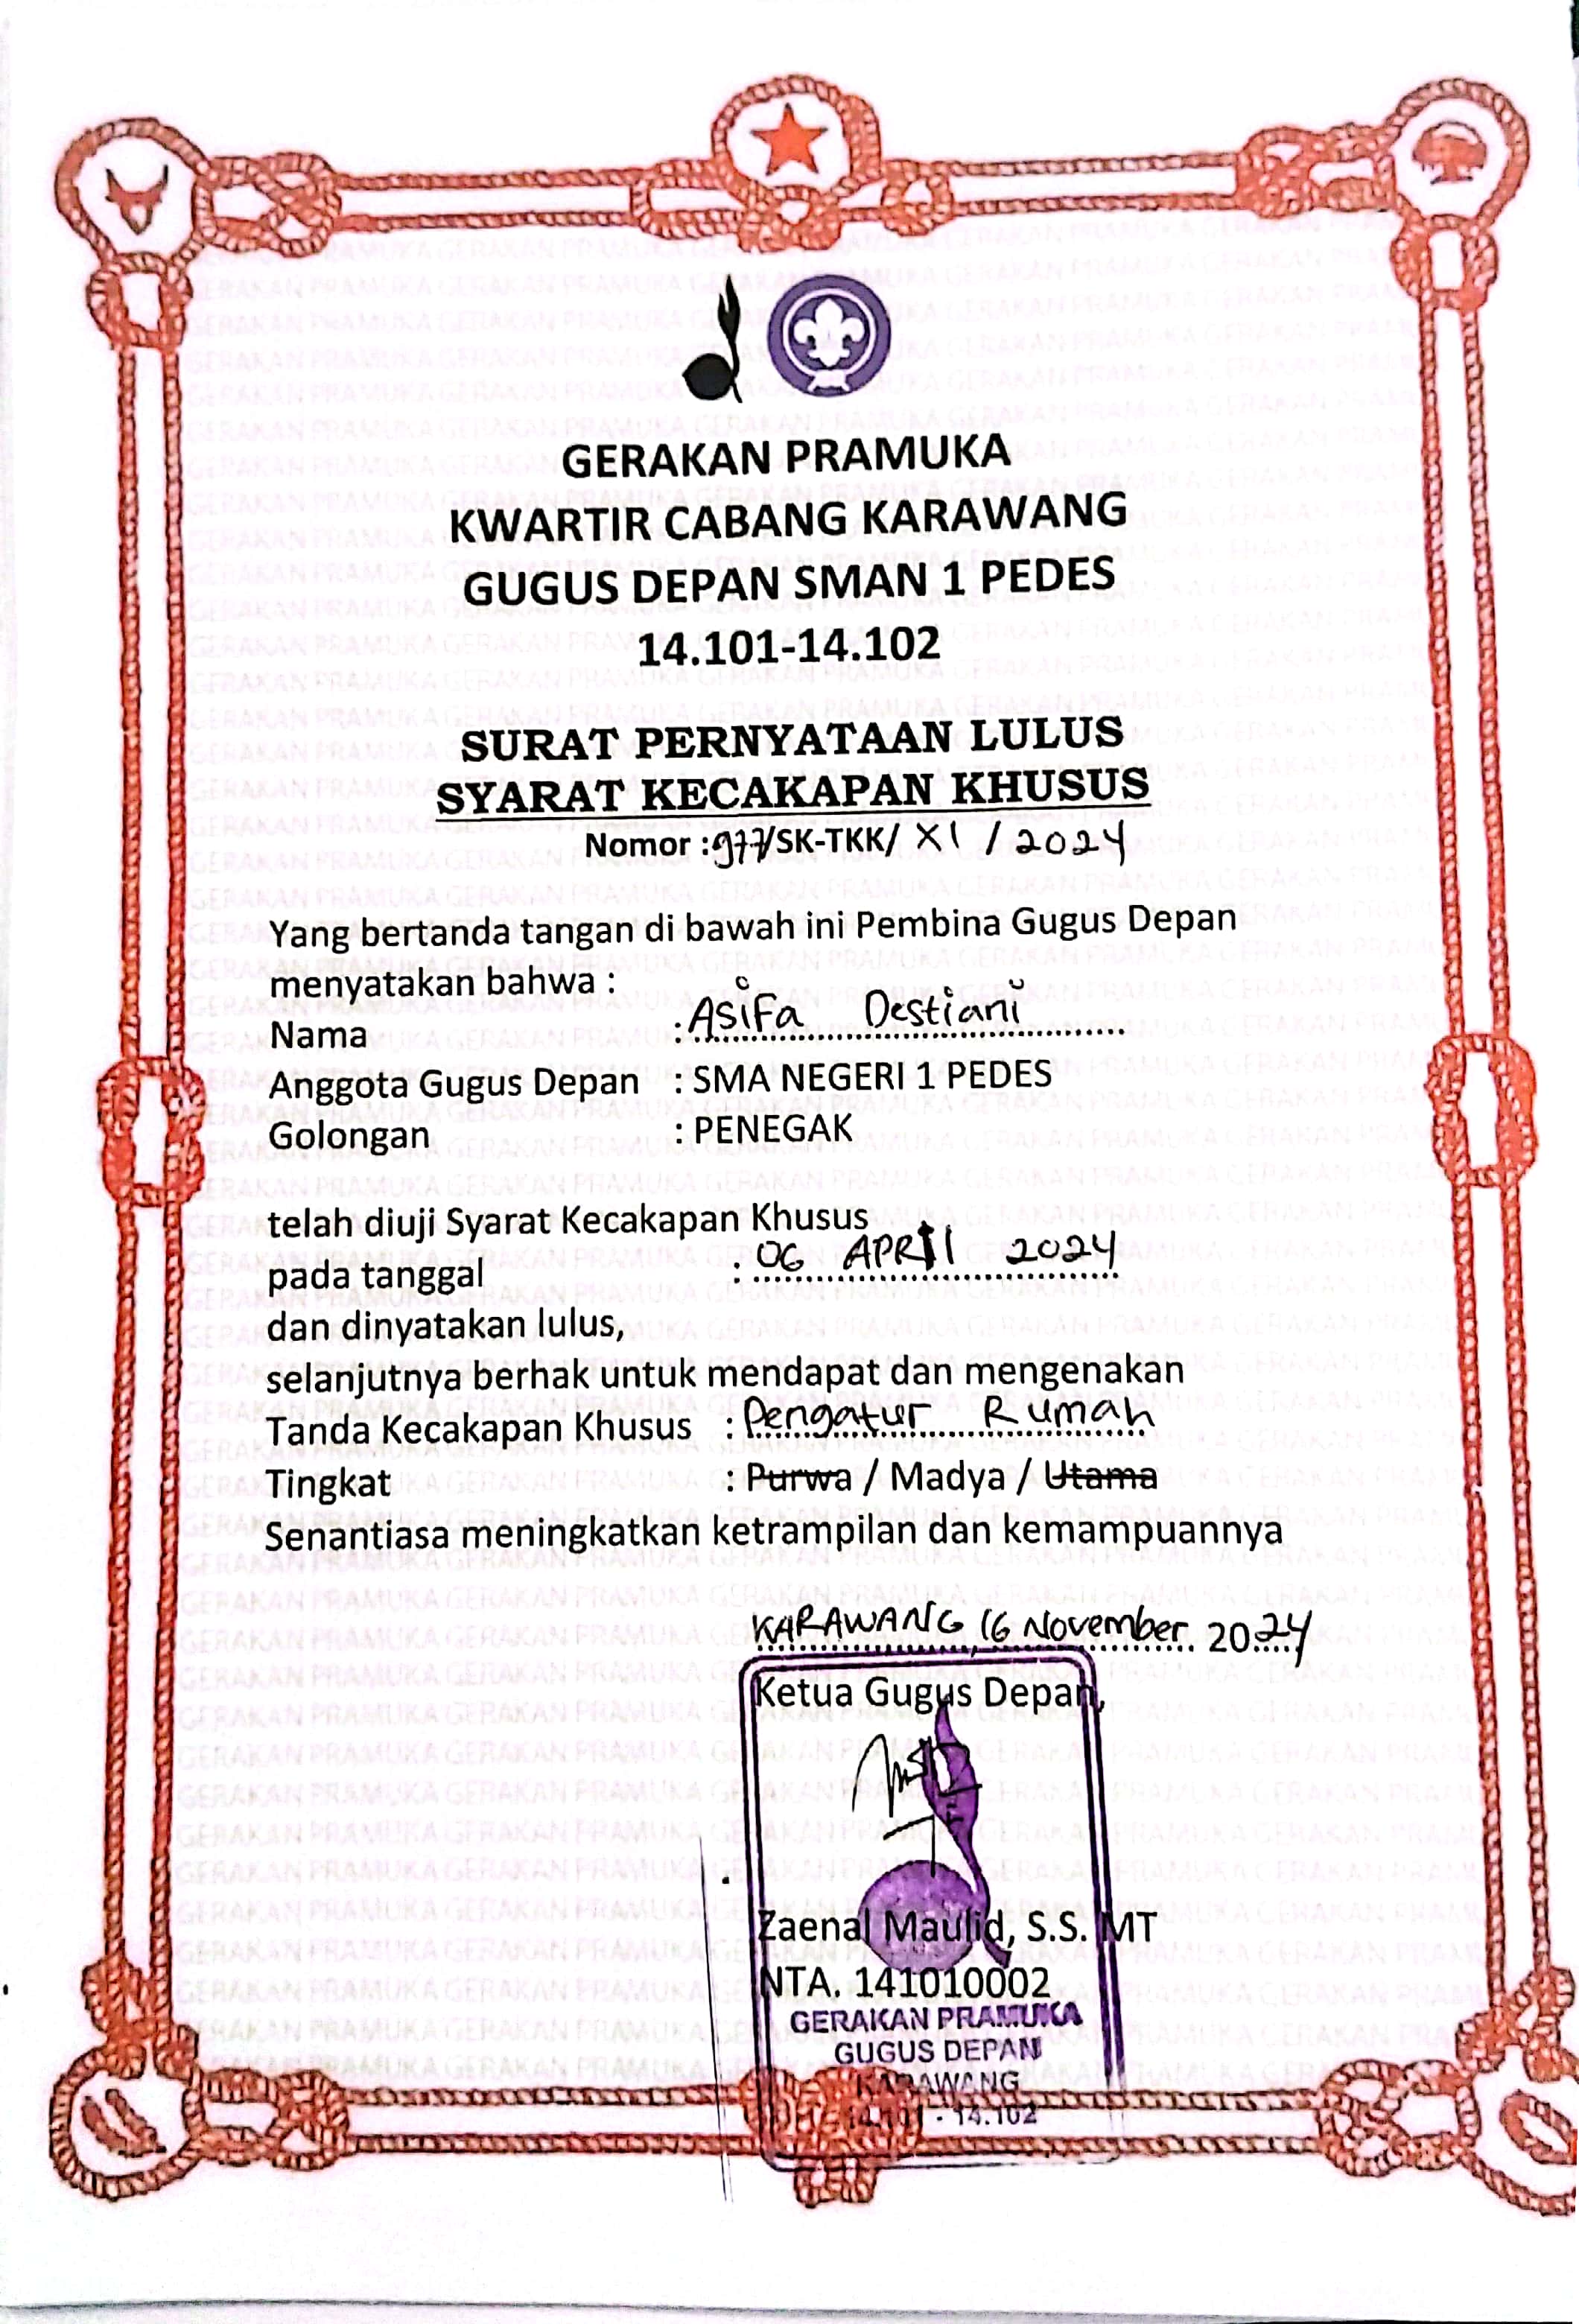 GERAKAN PRAMUKA
KWARTIR CABANG KARAWANG
GUGUS DEPAN SMAN 1 PEDES
14.101-14.102
SURAT PERNYATAAN LULUS
SYARAT KECAKAPAN KHUSUS
Nomor : 977/SK-TKK/ XI / 2024
Yang bertanda tangan di bawah ini Pembina Gugus Depan
menyatakan bahwa :
Nama : Asifa Destiani
Anggota Gugus Depan : SMA NEGERI 1 PEDES
Golongan : PENEGAK
telah diuji Syarat Kecakapan Khusus
pada tanggal : 06 APRIl 2024
dan dinyatakan lulus,
selanjutnya berhak untuk mendapat dan mengenakan
Tanda Kecakapan Khusus : Pengatur Rumah
Tingkat : Purwa / Madya / Utama
Senantiasa meningkatkan ketrampilan dan kemampuannya
KARAWANG, 16 November 2024
Ketua Gugus Depan,
Zaenal Maulid, S.S. MT
NTA. 141010002
GERAKAN PRAMUKA
GUGUS DEPAN
KARAWANG
14.101 - 14.102